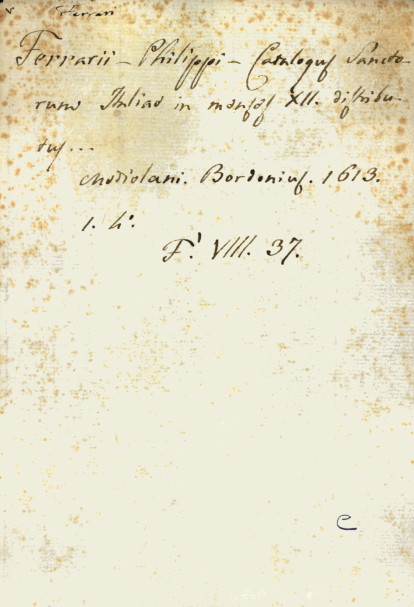 Ferrari
Ferrarii - Philippi - Catalogus Sancto-
rum Italiae in menses XII. distribu-
tus...
Mediolani. Bordonius. 1613.
1. 4°.
F. VIII. 37.
C